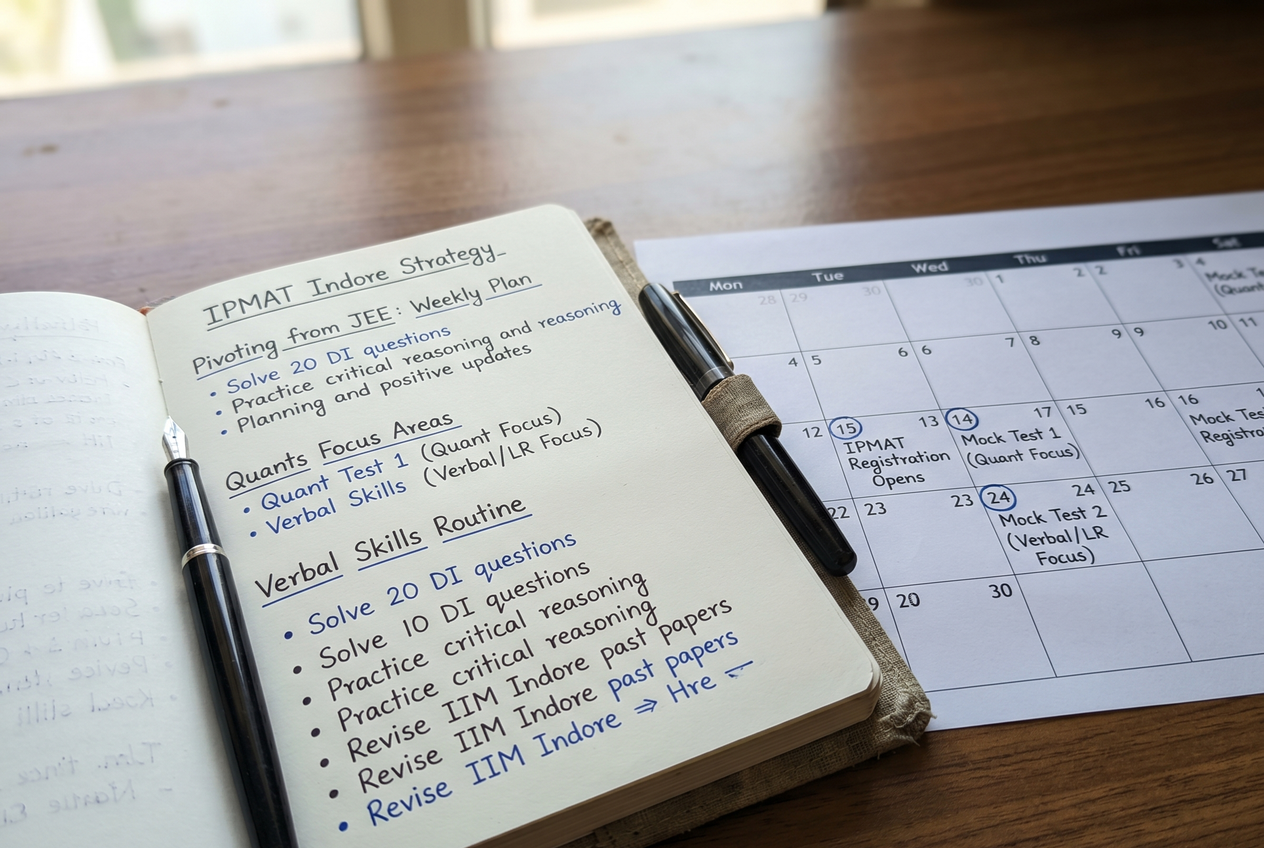 IPMAT Indore Strategy
Pivoting from JEE: Weekly Plan
• Solve 20 DI questions
• Practice critical reasoning and reasoning
• Planning and positive updates
Quants Focus Areas
• Quant Test 1 (Quant Focus)
• Verbal Skills (Verbal/LR Focus)
Verbal Skills Routine
• Solve 20 DI questions
• Solve 10 DI questions
• Practice critical reasoning
• Practice critical reasoning
• Revise IIM Indore past papers
• Revise IIM Indore past papers
• Revise IIM Indore ⇒ Hre
Mon Tue Wed Thu Fri Sat
28 29 30 30 1 2 2 3 4
Mock
(Quant
4 5 6 6 7 8 9 9 10 11
12 15 13 14 17 15 16 16
IPMAT
Registration
Opens
Mock Test 1
(Quant Focus)
Mock
22 23 23 24 24 25 26 27
Mock Test 2
(Verbal/LR
Focus)
20 30